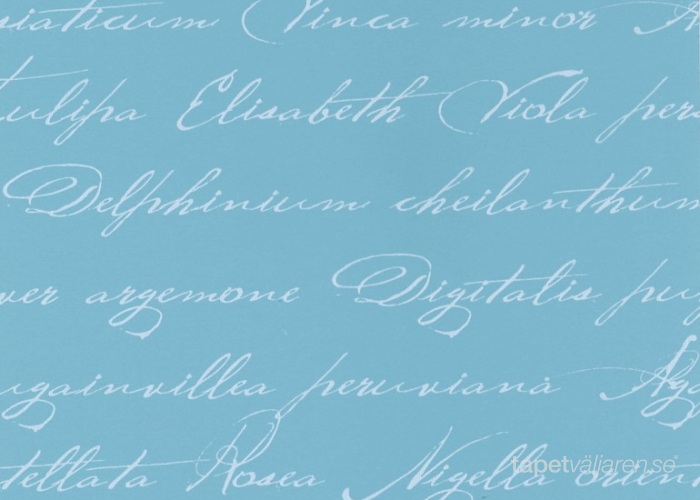 siaticum Vinca minor
Tulipa Elisabeth Viola per
Delphinium cheilanthum
ver argemone Digitalis pu
ugainvillea peruviana Ag
tellata Rosea Nigella orien
tapetväljaren.se